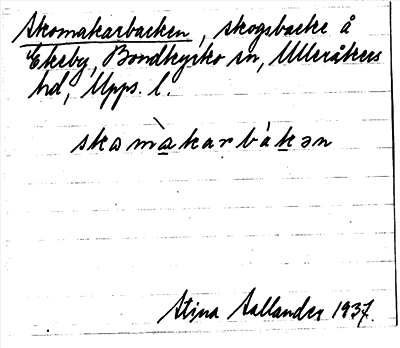 Skomakarbacken, skogsbacke å
Ekeby, Bondkyrko sn, Ulleråkers
hd, Upps. l.
skomàkarbákən
Stina Sallander 1937.